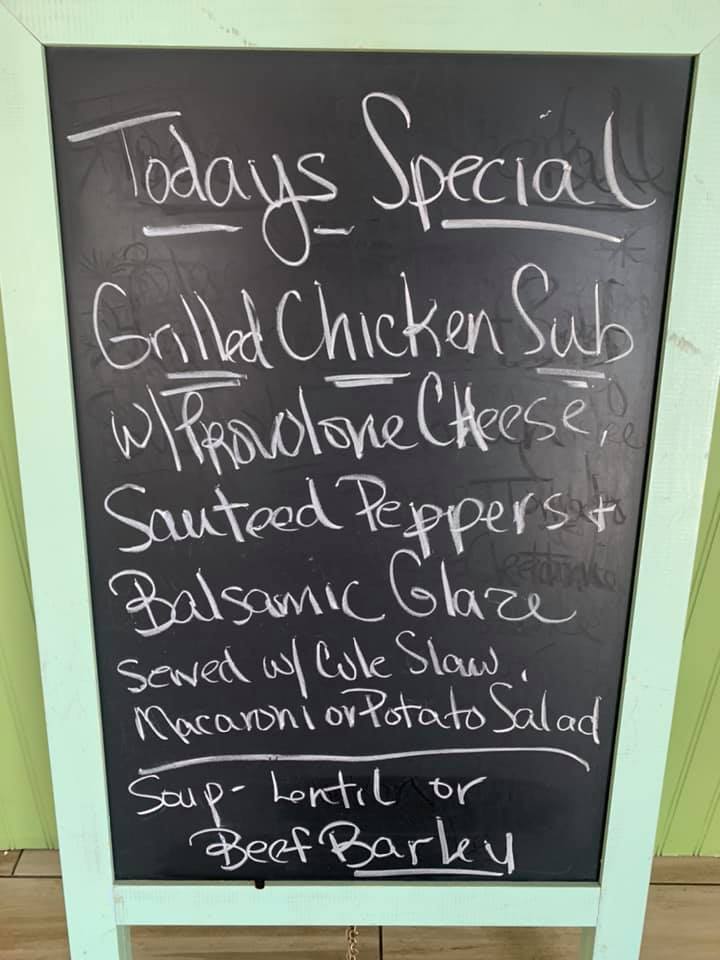 Todays Special
Grilled Chicken Sub
w/ Provolone Cheese,
Sauteed Peppers +
Balsamic Glaze
Served w/ Cole Slaw,
Macaroni or Potato Salad
Soup - Lentil or
Beef Barley